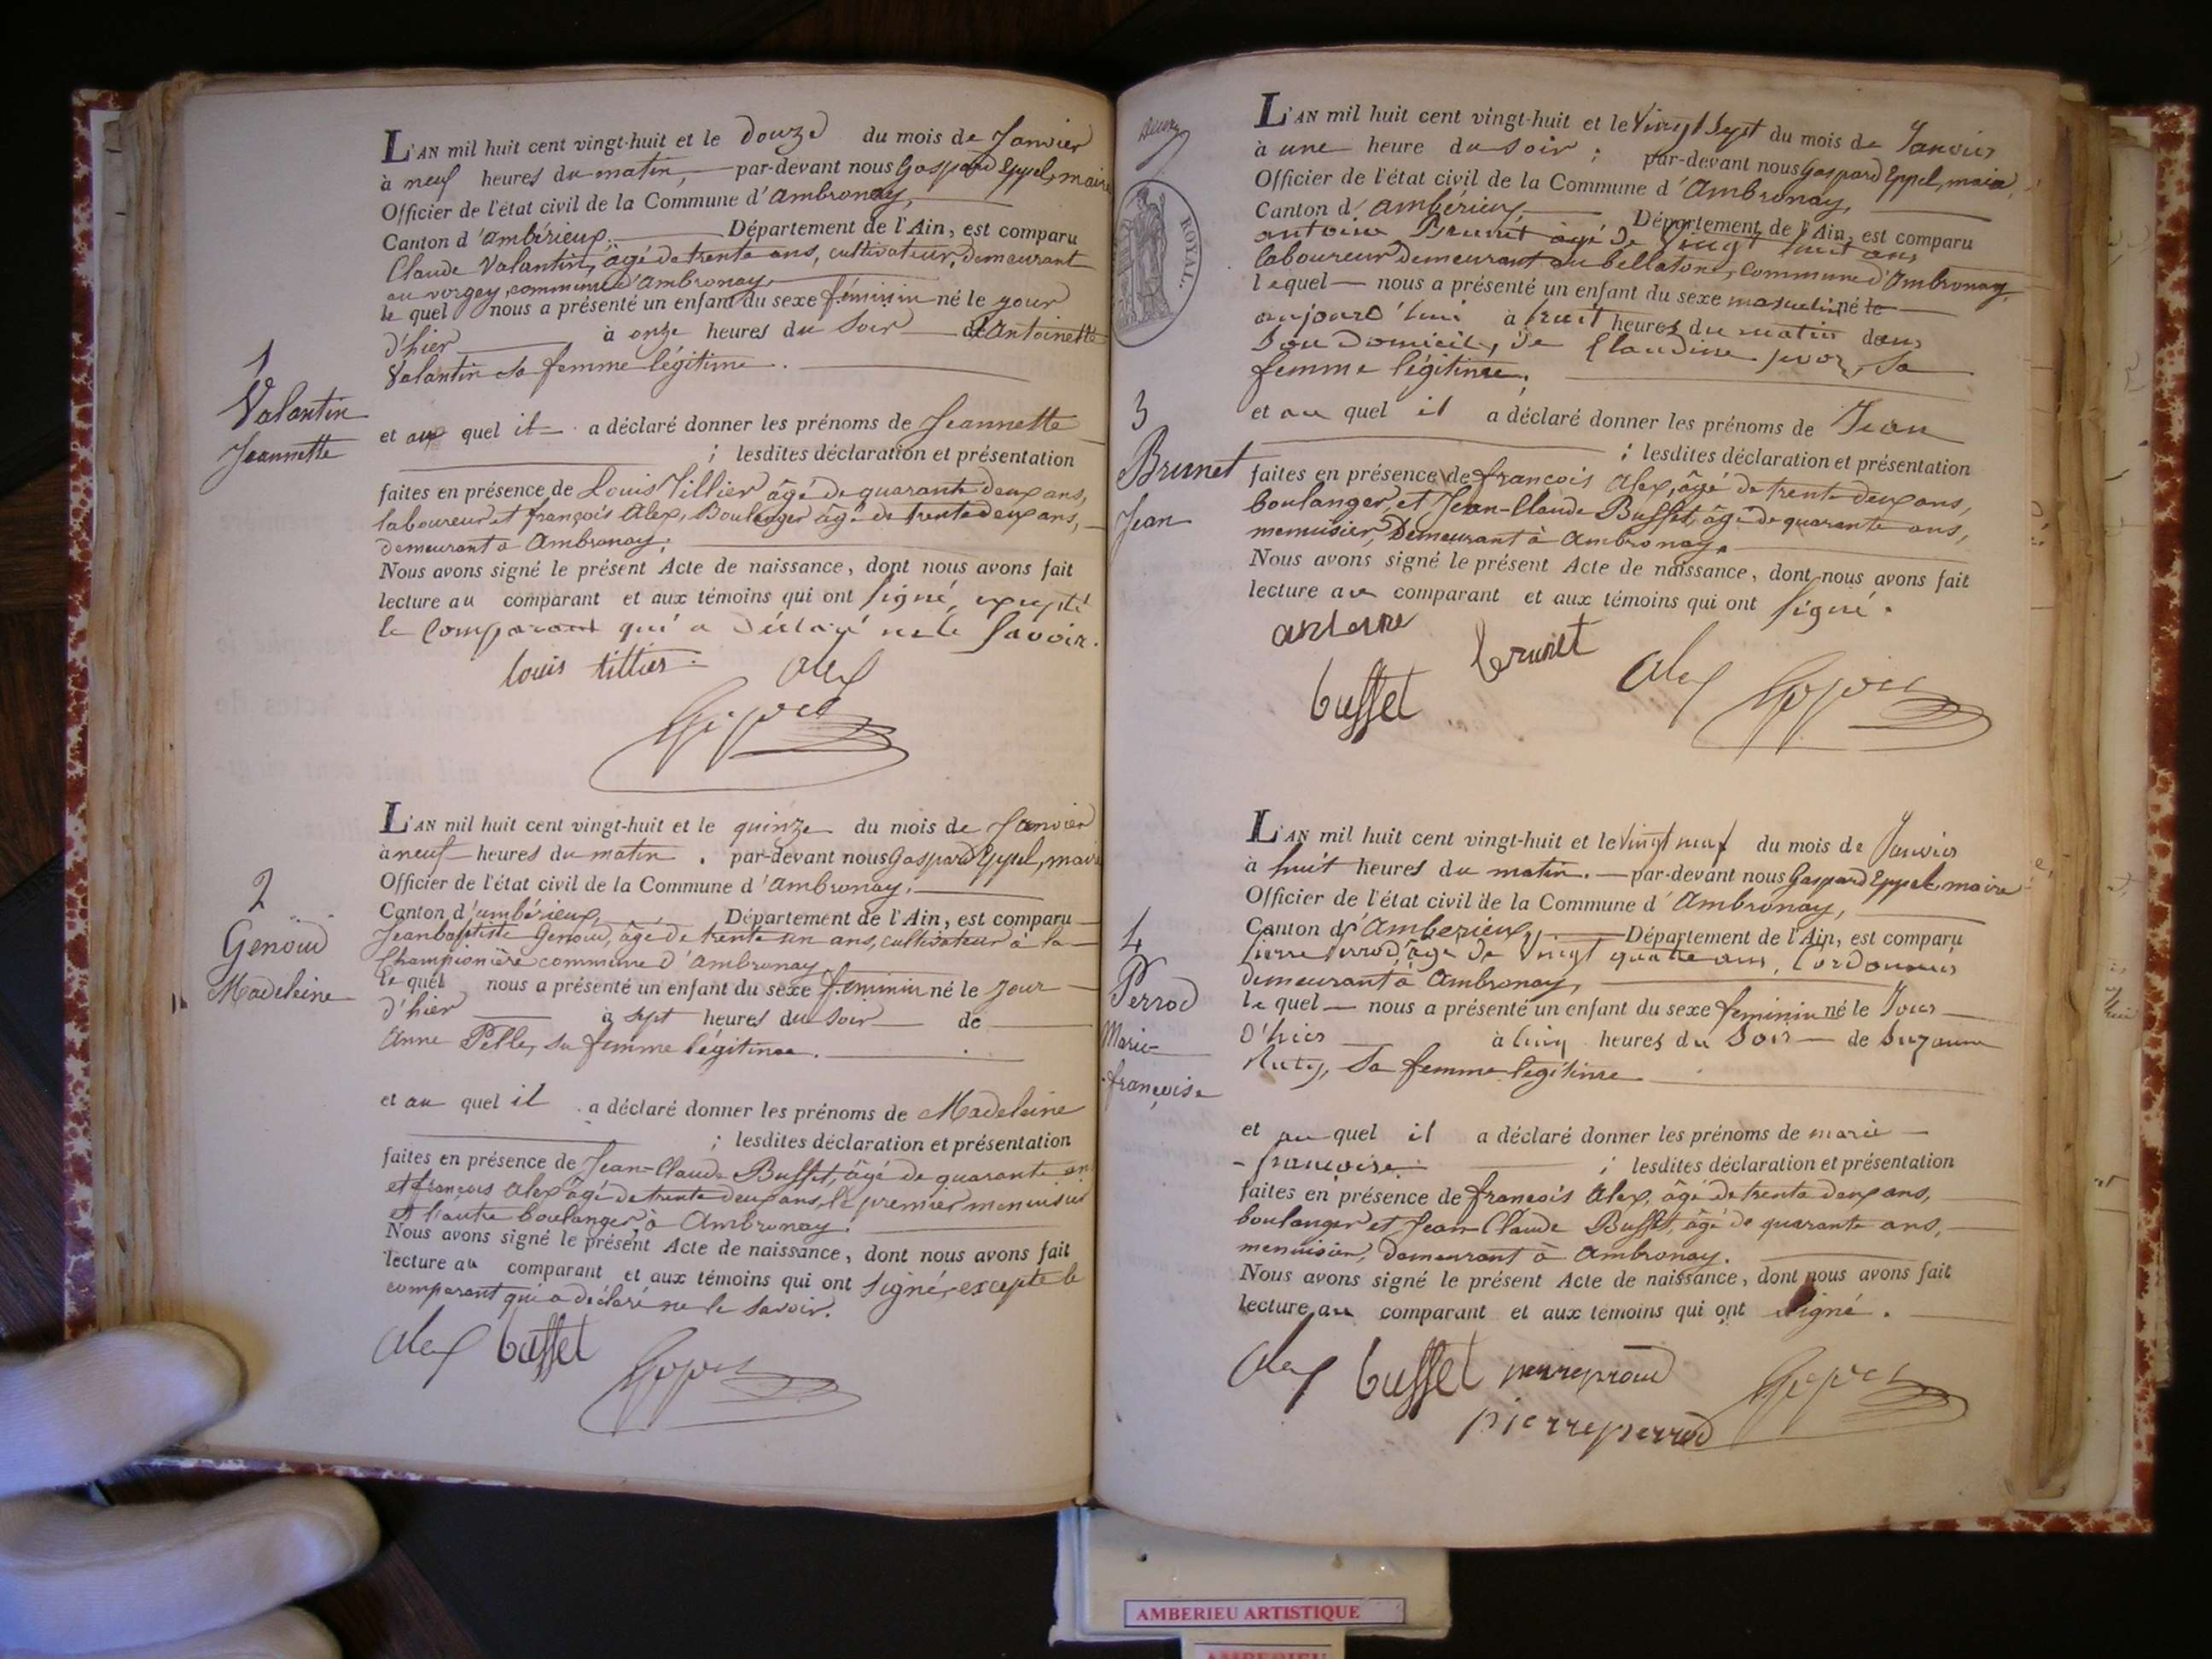 L'AN mil huit cent vingt-huit et le douze du mois de Janvier
à neuf heures du matin, par-devant nous Gaspard Eppel, maire
Officier de l'état civil de la Commune d'Ambronay,
Canton d'ambérieux, Département de l'Ain, est comparu
Claude Valantin, âgé de trente ans, cultivateur, demeurant
au vorgey, commune d'Ambronay,
le quel nous a présenté un enfant du sexe féminin né le jour
d'hier à onze heures du Soir d'Antoinette
Valantin sa femme légitime.
1
Valantin
Jeannette
et au quel il a déclaré donner les prénoms de Jeannette
; lesdites déclaration et présentation
faites en présence de Louis Tillier âgé de quarante deux ans,
laboureur et françois Alex, Boulanger âgé de trente deux ans,
demeurant à Ambronay;
Nous avons signé le présent Acte de naissance, dont nous avons fait
lecture au comparant et aux témoins qui ont signé, excepté
le Comparant qui a déclaré ne le savoir.
louis tillier alex
L'AN mil huit cent vingt-huit et le quinze du mois de Janvier
à neuf heures du matin. par-devant nous Gaspard Eppel, maire
Officier de l'état civil de la Commune d'Ambronay,
Canton d'ambérieux, Département de l'Ain, est comparu
Jean baptiste Genoud, âgé de trente un ans, cultivateur à la
Championière commune d'ambronay
le quel nous a présenté un enfant du sexe feminin né le jour
d'hier à sept heures du soir de
Anne Pelle, sa femme légitime.
2
Genoud
Madeleine
et au quel il a déclaré donner les prénoms de Madeleine
; lesdites déclaration et présentation
faites en présence de Jean-Claude Buffet, âgé de quarante an
et françois alex âgé de trente deux ans, le premier menuisier
et l'autre boulanger, à Ambronay.
Nous avons signé le présent Acte de naissance, dont nous avons fait
lecture au comparant et aux témoins qui ont signé, excepté le
comparant qui a déclaré ne le savoir.
alex buffet
ROYAL.
L'AN mil huit cent vingt-huit et le Vingt Sept du mois de Janvier
à une heure du soir; par-devant nous Gaspard Eppel, maire
Officier de l'état civil de la Commune d'Ambronay,
Canton d'ambérieux, Département de l'Ain, est comparu
antoine Brunet âgé de Vingt huit ans
laboureur demeurant au bellaton, commune d'Ambronay,
lequel nous a présenté un enfant du sexe masculin né le
aujourd'hui à huit heures du matin dans
Son Domicile, de Claudine sa
femme légitime,
3
Brunet
Jean
et au quel il a déclaré donner les prénoms de Jean
; lesdites déclaration et présentation
faites en présence de françois Alex, âgé de trente deux ans,
boulanger, et Jean-Claude Buffet, âgé de quarante ans,
menuisier, Demeurant à Ambronay.
Nous avons signé le présent Acte de naissance, dont nous avons fait
lecture au comparant et aux témoins qui ont signé.
antoine brunet
buffet alex
L'AN mil huit cent vingt-huit et le Vingt neuf du mois de Janvier
à huit heures du matin. par-devant nous Gaspard Eppel, maire
Officier de l'état civil de la Commune d'Ambronay,
Canton d'Amberieux, Département de l'Ain, est comparu
Pierre Perrod, âgé de Vingt quatre ans, Cordonnier
demeurant à Ambronay,
le quel nous a présenté un enfant du sexe feminin né le Jour
D'hier à Cinq heures du Soir de Suzanne
sa femme légitime
4
Perrod
Marie
françoise
et au quel il a déclaré donner les prénoms de marie
francoise ; lesdites déclaration et présentation
faites en présence de francois Alex, âgé de trente deux ans,
boulanger et Jean-Claude Buffet, âgé de quarante ans,
menuisier, demeurant à Ambronay.
Nous avons signé le présent Acte de naissance, dont nous avons fait
lecture au comparant et aux témoins qui ont signé.
alex buffet
pierre perrod
AMBERIEU ARTISTIQUE
AMBERIEU